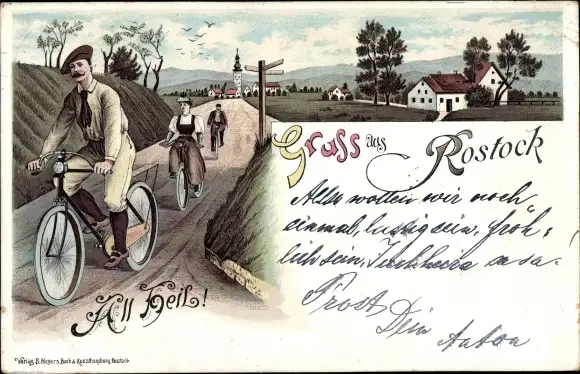 Gruss aus Rostock
Allen wollen wir noch
einmal, lustig sein, fröh=
lich sein, Juchheira sa sa-
Prost
Dein Anton
All Heil!
Verlag B. Meyer's Buch & Kunsthandlung Rostock